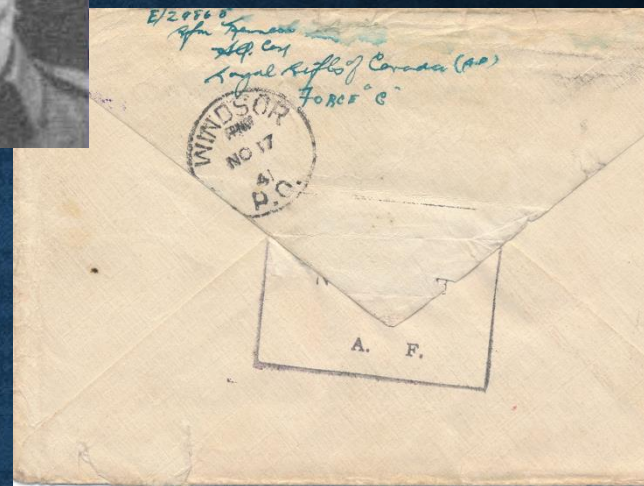 E/29868
Rfn Kenneth
HQ. Coy
Royal Rifles of Canada (AF)
FORCE "C"
WINDSOR
PM
NO 17
41
P.Q.
N T
A. F.